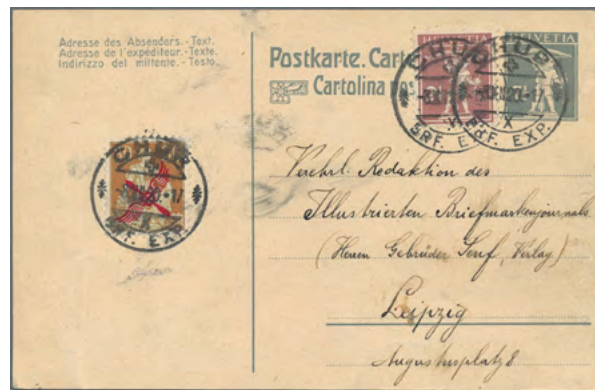 Adresse des Absenders. - Text.
Adresse de l'expéditeur. - Texte.
Indirizzo del mittente. - Testo.
Postkarte. Carte
Cartolina
HELVETIA
HELVETIA
CHUR
CHUR
BRF. EXP.
BRF. EXP.
CHUR
BRF. EXP.
Verehrl. Redaktion des
Illustrierten Briefmarkenjournals
(Herren Gebrüder Senf, Verlag)
Leipzig
Augustusplatz 8